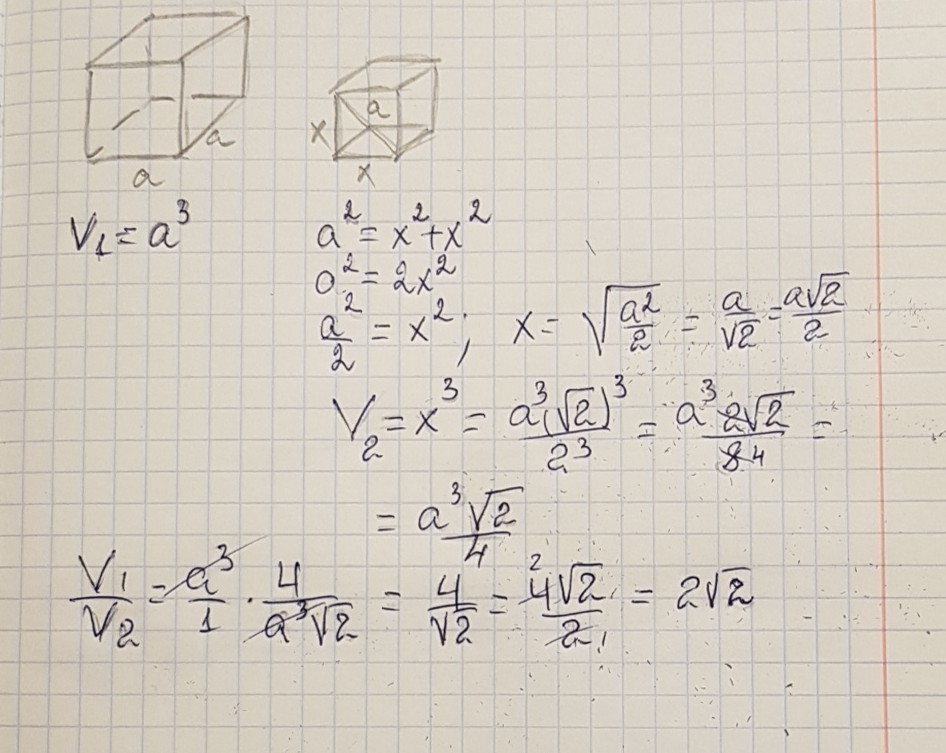 a
a
a
x
x
V₁ = a³
a² = x² + x²
a² = 2x²
a²/2 = x²; x = √(a²/2) = a/√2 = a√2/2
V₂ = x³ = a³(√2)³/2³ = a³2√2/8 4 =
= a³√2/4
V₁/V₂ = a³/1 · 4/a³√2 = 4/√2 = 2 4√2/2 1 = 2√2